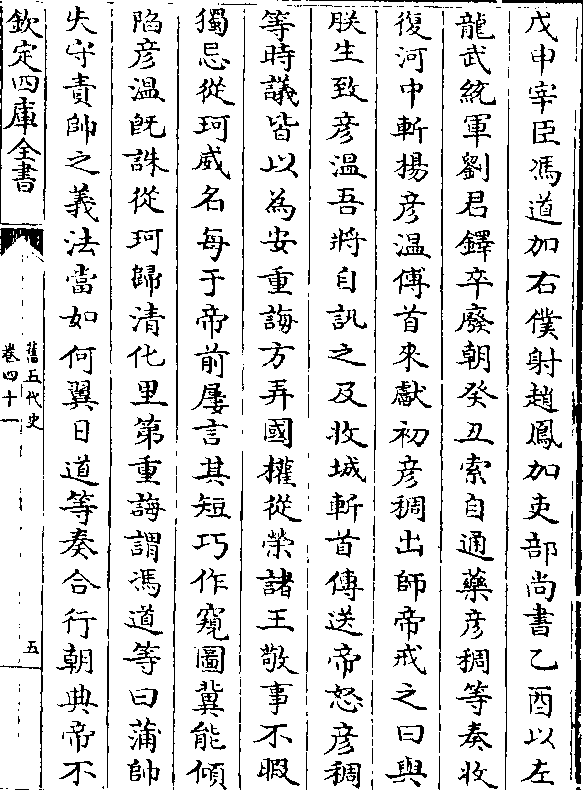 戊申宰臣馮道加右僕射趙鳳加吏部尚書乙酉以左
龍武統軍劉君鐸卒廢朝癸丑索自通藥彦稠等奏收
復河中斬揚彦温傳首來獻初彦稠出師帝戒之曰與
朕生致彦温吾將自訊之及收城斬首傳送帝怒彦稠
等時議皆以為安重誨方弄國權從榮諸王敬事不暇
獨忌從珂威名每于帝前屢言其短巧作窺圖冀能傾
陷彦温既誅從珂歸清化里第重誨謂馮道等曰蒲帥
失守責帥之義法當如何翼日道等奏合行朝典帝不
欽定四庫全書
舊五代史
卷四十一
五